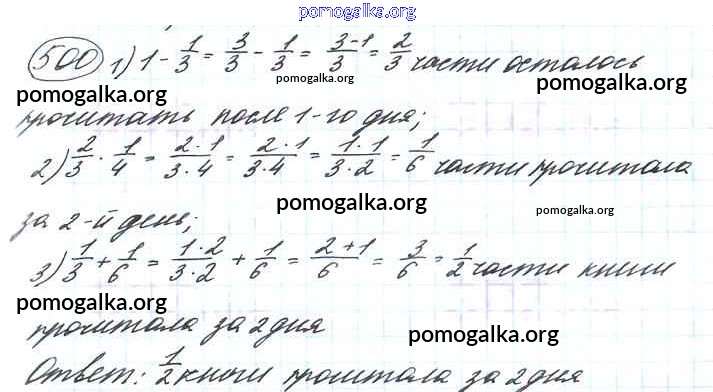 pomogalka.org
500 1) 1 - 1/3 = 3/3 - 1/3 = (3-1)/3 = 2/3 части осталось
pomogalka.org
pomogalka.org pomogalka.org
прочитать после 1-го дня;
2) 2/3 · 1/4 = (2·1)/(3·4) = (2·1)/(3·4) = (1·1)/(3·2) = 1/6 части прочитала
pomogalka.org pomogalka.org
за 2-й день;
3) 1/3 + 1/6 = (1·2)/(3·2) + 1/6 = (2+1)/6 = 3/6 = 1/2 части книги
pomogalka.org
прочитала за 2 дня
pomogalka.org
Ответ: 1/2 книги прочитала за 2 дня